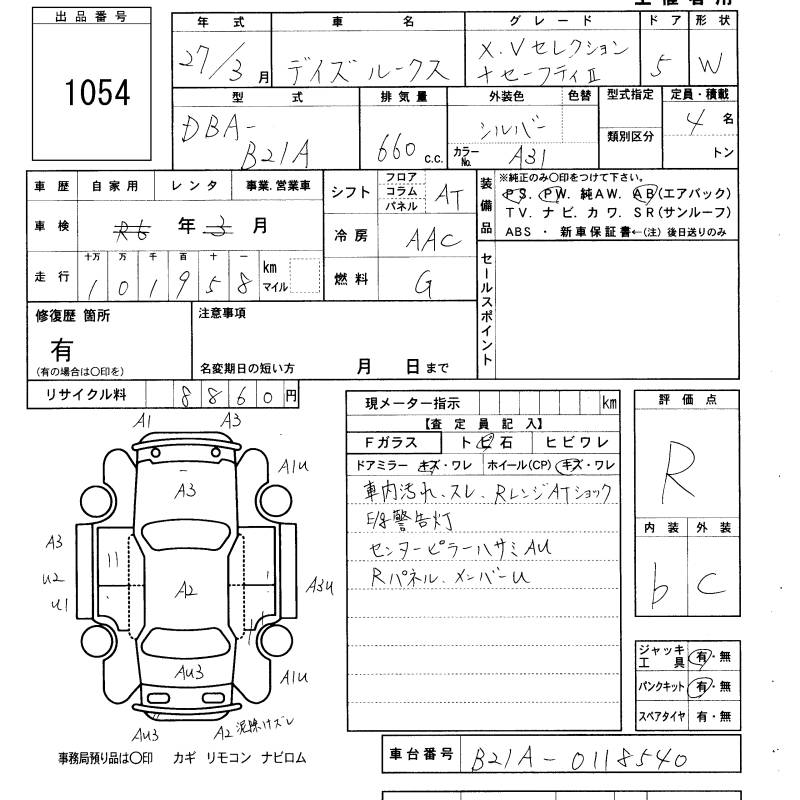 出品番号
1054
年式 車名 グレード ドア 形状
27/3月 デイズルークス X.Vセレクション
+セーフティII 5 W
型式 排気量 外装色 色替 型式指定 定員・積載
DBA-
B21A 660 c.c. シルバー 類別区分 4 名
カラーNo. A31 トン
車歴 自家用 レンタ 事業.営業車
シフト フロア コラム パネル AT
装備品 ※純正のみ〇印をつけて下さい。
PS. PW. 純AW. AB(エアバック)
TV. ナビ. カワ. SR(サンルーフ)
ABS ・ 新車保証書←(注) 後日送りのみ
車検 R6 年 3 月
冷房 AAC
走行 十万 万 千 百 十 一
101958 km マイル
燃料 G
セールスポイント
修復歴 箇所
有
(有の場合は〇印を)
注意事項
名変期日の短い方 月 日まで
リサイクル料 8860円
現メーター指示 km
【査定員記入】
Fガラス トビ石 ヒビワレ
ドアミラー キズ・ワレ ホイール(CP) キズ・ワレ
車内汚れ.スレ.RレンジATショック
E/g警告灯
センターピラーハサミAU
Rパネル.メンバーU
評価点
R
内装 外装
b C
A1 A3
A1U
A3
A3
U2
U1
A2
A3U
AU3
A1U
AU3 A2 泥除けズレ
ジャッキ工具 有・無
パンクキット 有・無
スペアタイヤ 有・無
事務局預り品は〇印 カギ リモコン ナビロム
車台番号 B21A-0118540